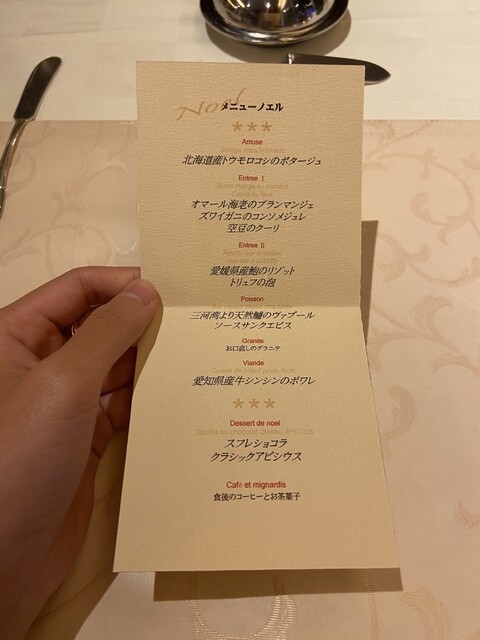 Noël メニューノエル
***
Amuse
北海道産トウモロコシのポタージュ
Entree I
オマール海老のブランマンジェ
ズワイガニのコンソメジュレ
空豆のクーリ
Entree II
愛媛県産鮑のリゾット
トリュフの泡
Poisson
三河湾より天然鱸のヴァプール
ソースサンクエピス
Granite
お口直しのグラニテ
Viande
愛知県産牛シンシンのポワレ
***
Dessert de noel
スフレショコラ
クラシックアピシウス
Café et mignardis
食後のコーヒーとお茶菓子